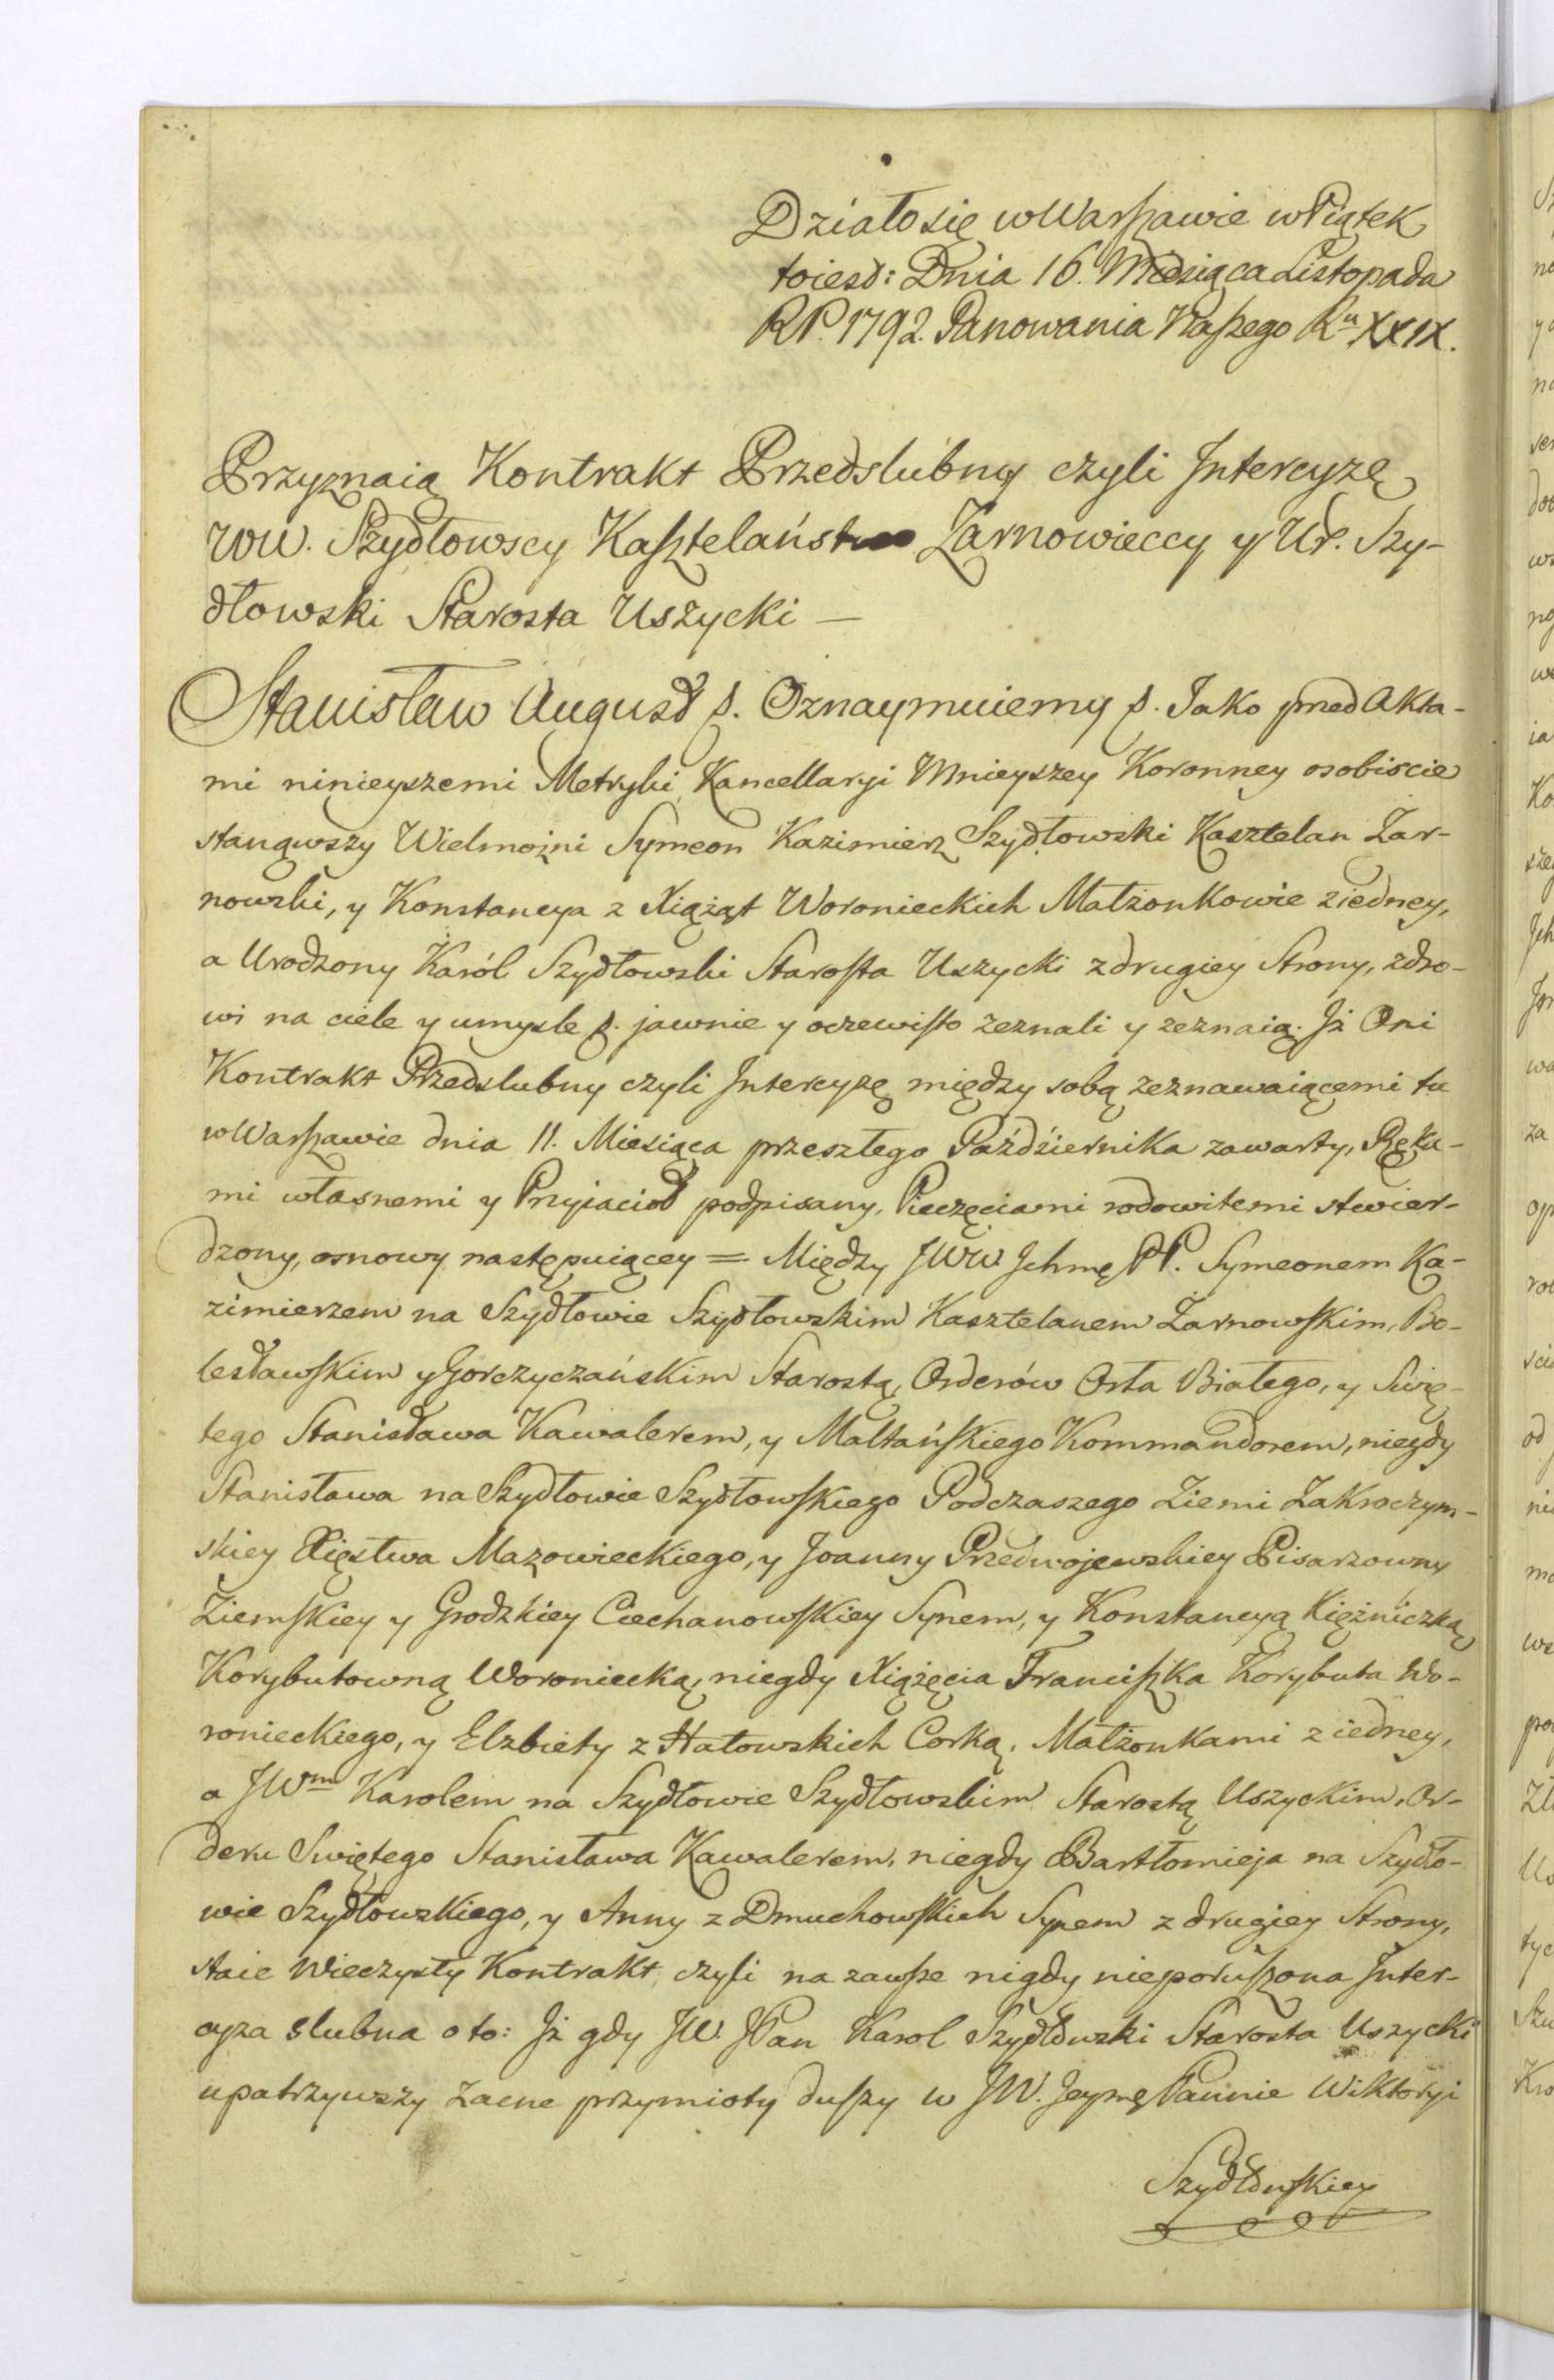 Działo się w Warszawie w Piątek
to iest: Dnia 16. Miesiąca Listopada
R.P. 1792. Panowania Naszego Ru XXIX.
Przyznaią Kontrakt Przedslubny czyli Intercyzę
WW. Szydłowscy Kasztelaństwo Zarnowieccy y Ur. Szy-
dłowski Starosta Uszycki —
Stanisław August p. Oznaymuiemy p. Jako przed Akta-
mi ninieyszemi Metryki Kancellaryi Mnieyszey Koronney osobiscie
stanąwszy Wielmożni Symeon Kazimierz Szydłowski Kasztelan Żar-
nowski, y Konstancya z Xiążąt Woronieckich Małżonkowie z iedney,
a Urodzony Karól Szydłowski Starosta Uszycki z drugiey Strony, zdro-
wi na ciele y umysle p. jawnie y oczewisto zeznali y zeznaią. Jż Oni
Kontrakt Przedslubny czyli Intercyzę między sobą zeznawaiącemi tu
w Warszawie dnia 11. Miesiąca przeszłego Października zawarty, Ręka-
mi własnemi y Przyiaciół podpisany, Pieczęciami rodowitemi stwier-
dzony, osnowy następuiącey = Między JWW Jchmę PP. Symeonem Ka-
zimierzem na Szydłowie Szydłowskim Kasztelanem Żarnowskim, Bo-
lesławskim y Gorczyczańskim Starostą, Orderów Orła Białego, y Swię-
tego Stanisława Kawalerem, y Maltańskiego Kommandorem, niegdy
Stanisława na Szydłowie Szydłowskiego Podczaszego Ziemi Zakroczym-
skiey Xięstwa Mazowieckiego, y Joanny Przedwojewskiey Pisarzowny
Ziemskiey y Grodzkiey Ciechanowskiey Synem, y Konstancyą Xiężniczką
Korybutowną Woroniecką, niegdy Xiążęcia Franciszka Korybuta Wo-
ronieckiego, y Elzbiety z Hałowskich Corką, Małżonkami z iedney,
a JWm Karolem na Szydłowie Szydłowskim Starostą Uszyckim, Or-
deru Swiętego Stanisława Kawalerem, niegdy Bartłomieja na Szydło-
wie Szydłowskiego, y Anny z Dmuchowskich Synem z drugiey Strony,
staie Wieczysty Kontrakt, czyli na zawsze nigdy nieporuszona Inter-
cyza slubna o to: Jż gdy JW. JPan Karol Szydłowski Starosta Uszycki
upatrzywszy zacne przymioty duszy w JW. Jeymę Pannie Wiktoryi
Szydłowskiey